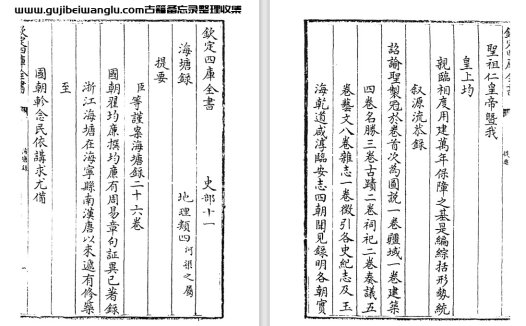 www.gujibeiwanglu.com古籍备忘录整理收集
欽定四庫全書
史部十一
海塘録
地理類四河渠之屬
提要
臣等謹案海塘録二十六卷
國朝翟均廉撰均廉有周易章句証異已著録
浙江海塘在海寧縣南漢唐以來遞有修築
至
國朝軫念民依講求尤備
欽定四庫全書
海塘録
聖祖仁皇帝曁我
皇上均
親臨相度用建萬年保障之基是編綜括形勢統
叙源流恭録
詔諭聖製冠於卷首次為圖説一卷疆域一卷建築
四卷名勝三卷古蹟二卷祠祀二卷奏議五
卷藝文八卷雜志一卷徵引各史紀志及玉
海乾道咸淳臨安志四朝聞見録明各朝實